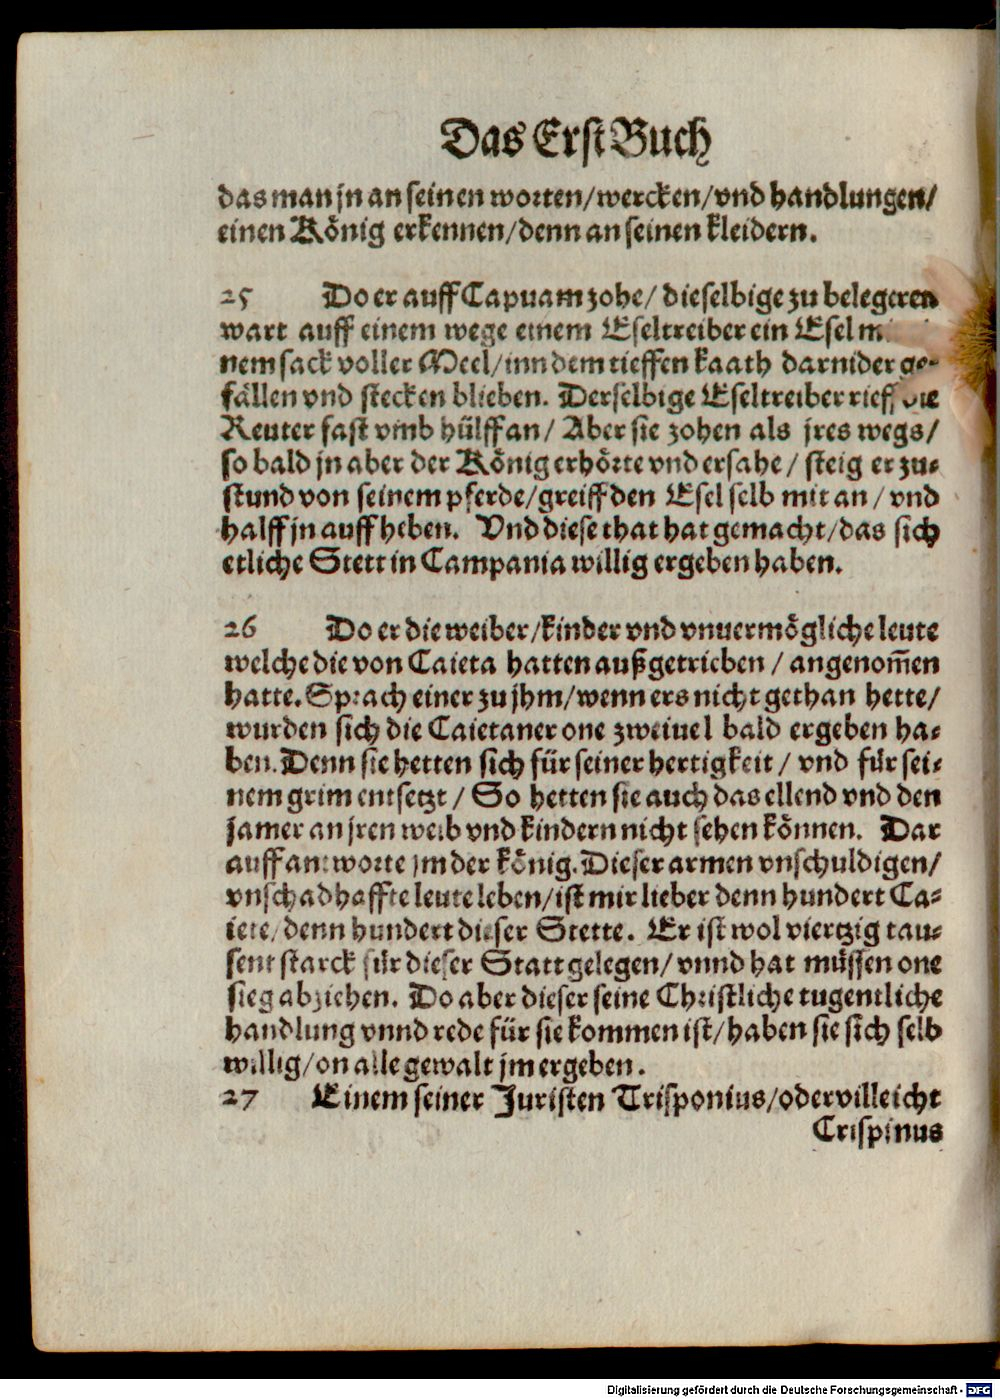 Das Erst Buch
das man jn an seinen worten/wercken/vnd handlungen/
einen König erkennen/denn an seinen kleidern.
25 Do er auff Capuam zohe/ dieselbige zu belegeren
wart auff einem wege einem Eseltreiber ein Esel
nem sack voller Meel/inn dem tieffen kaath darnider ge-
fallen vnd stecken blieben. Derselbige Eseltreiber rieff die
Reuter fast vmb hülff an/ Aber sie zohen als jres wegs/
so bald jn aber der König erhörte vnd ersahe/ steig er zu-
stund von seinem pferde/greiff den Esel selb mit an/ vnd
halff jn auff heben. Vnd diese that hat gemacht/das sich
etliche Stett in Campania willig ergeben haben.
26 Do er die weiber/kinder vnd vnuermögliche leute
welche die von Caieta hatten außgetrieben/ angenom̃en
hatte. Sprach einer zu jhm/wenn ers nicht gethan hette/
wurden sich die Caietaner one zweiuel bald ergeben ha-
ben. Denn sie hetten sich für seiner hertigkeit/ vnd für sei-
nem grim entsetzt/ So hetten sie auch das ellend vnd den
jamer an jren weib vnd kindern nicht sehen können. Dar
auff antworte jm der könig. Dieser armen vnschuldigen/
vnschadhaffte leute leben/ist mir lieber denn hundert Ca-
iete/denn hundert dieser Stette. Er ist wol viertzig tau-
sent starck für dieser Statt gelegen/ vnnd hat müssen one
sieg abziehen. Do aber dieser seine Christliche tugentliche
handlung vnnd rede für sie kommen ist/haben sie sich selb
willig/on alle gewalt jm ergeben.
27 Einem seiner Juristen Trisponius/oder villeicht
Crispinus
Digitalisierung gefördert durch die Deutsche Forschungsgemeinschaft - DFG